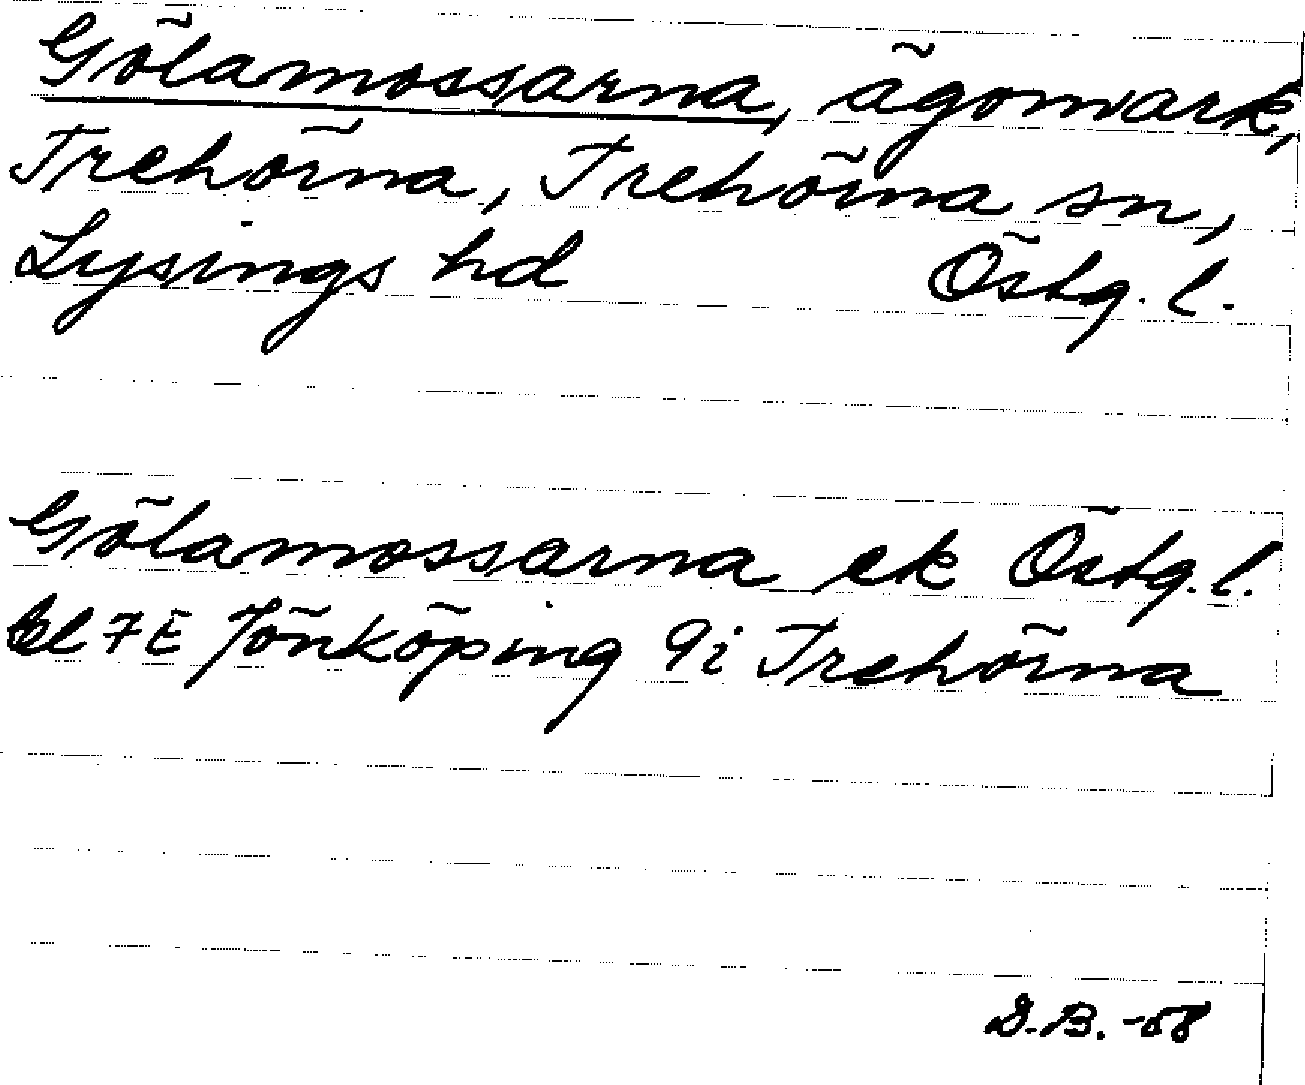 Gölamossarna, ägomark,
Trehörna, Trehörna sn,
Lysings hd Östg. l.
Gölamossarna ek Östg. l.
bl 7E Jönköping 9i Trehörna
G.B. -68